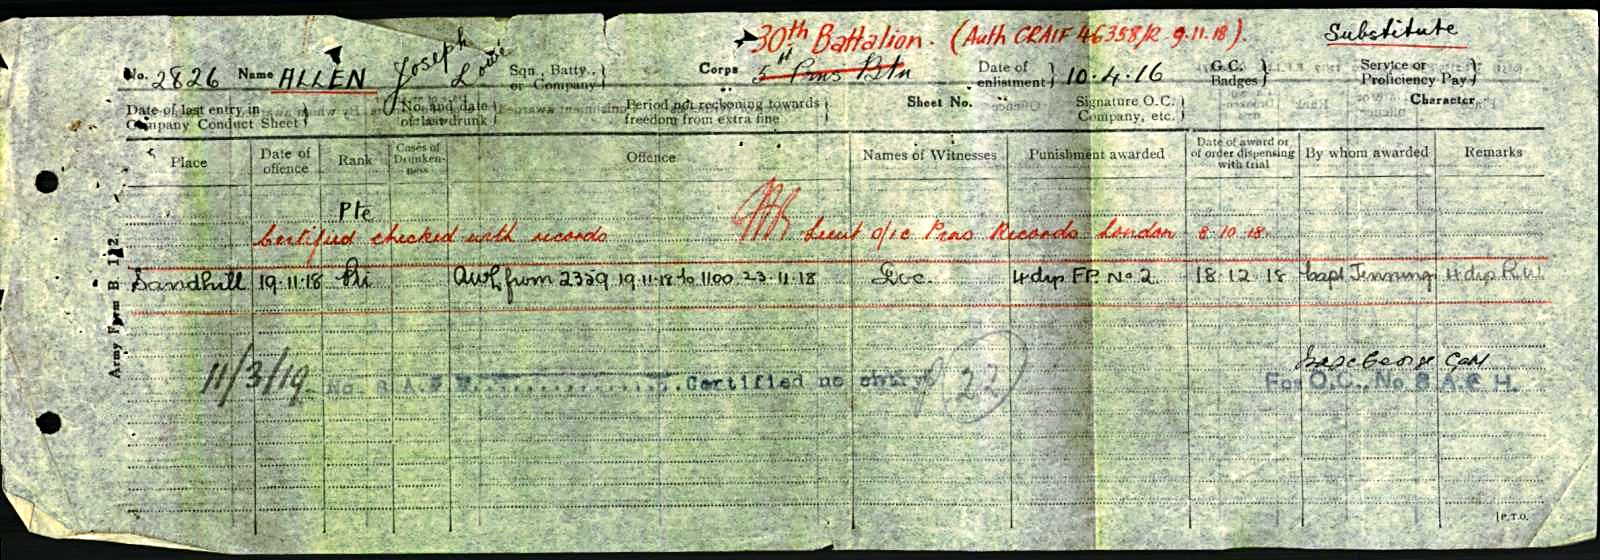 30th Battalion. (Auth CRAIF 46358/R 9.11.18). Substitute
No. 2826 Name ALLEN Joseph Louis Sqn., Batty., or Company Corps 5th Pnrs Btn Date of enlistment 10.4.16 G.C. Badges Service or Proficiency Pay
Date of last entry in Company Conduct Sheet No. and date of last drunk Period not reckoning towards freedom from extra fine Sheet No. Signature O.C. Company, etc. Character
Place Date of offence Rank Cases of Drunkenness Offence Names of Witnesses Punishment awarded Date of award or of order dispensing with trial By whom awarded Remarks
Pte
Certified checked with records Lieut o/ic Pnrs Records London 8.10.18
Sandhill 19.11.18 Pte AWL from 2359 19.11.18 to 1100 23.11.18 Doc. 4 dys F.P. No 2. 18.12.18 Capt Jennings 4 dys R.W.
George Capt
11/3/19 No. 8 A.G.H. Certified no entry 22 For O.C., No 8 A.G.H.
Army Form B 122.
P.T.O.